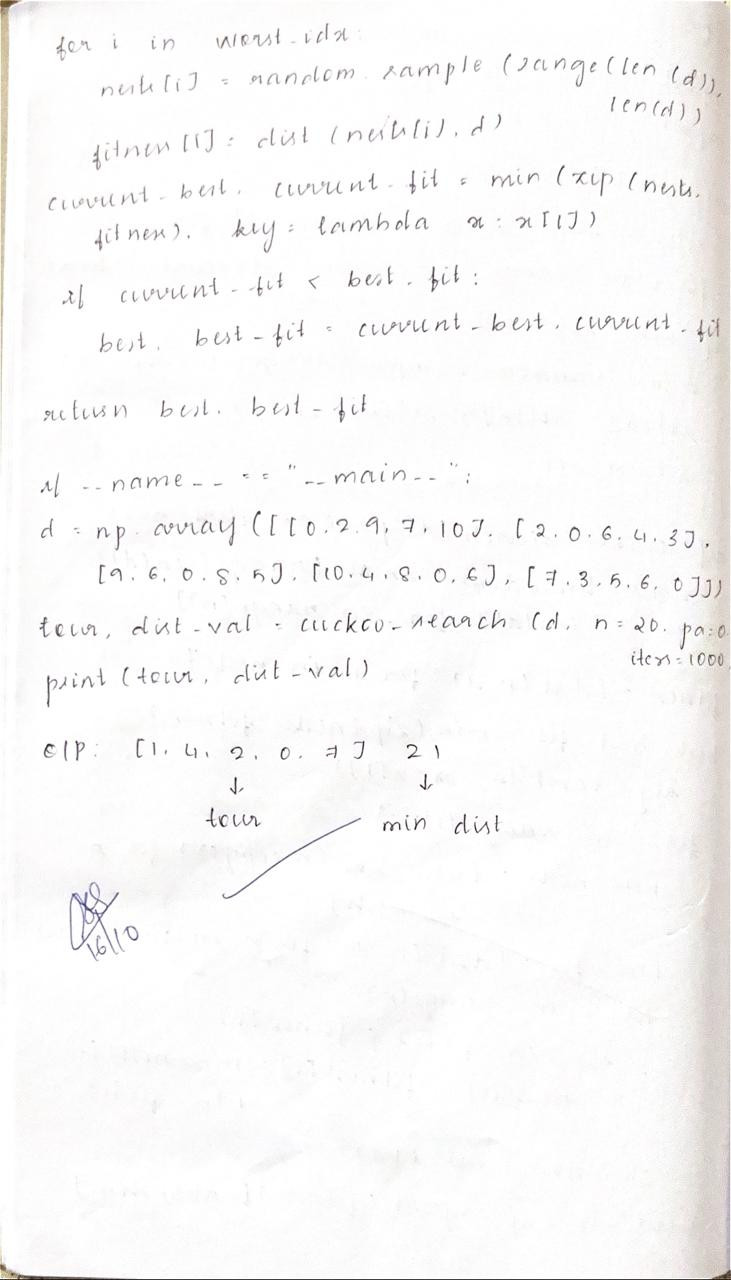 for i in worst_idx:
nests[i] = random.sample (range(len(d)),
len(d))
fitness[i] = dist (nests[i], d)
current_best, current_fit = min (zip (nests,
fitness), key = lambda x: x[1])
if current_fit < best_fit:
best, best_fit = current_best, current_fit
return best, best_fit
if __name__ == "__main__":
d = np.array([[0,2,9,7,10], [2,0,6,4,3],
[9,6,0,8,5], [10,4,8,0,6], [7,3,5,6,0]])
tour, dist_val = cuckoo_search (d, n=20, pa=0
iter=1000
print (tour, dist_val)
O/P: [1, 4, 2, 0, 7] 21
↓ ↓
tour min dist
16/10